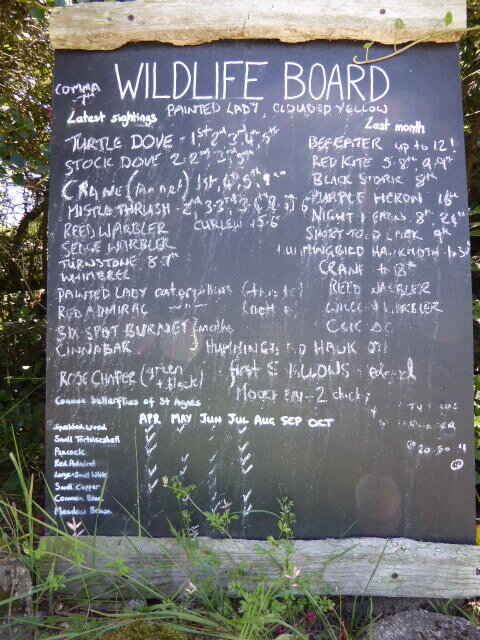 WILDLIFE BOARD
COMMA 7th
PAINTED LADY, CLOUDED YELLOW
Latest sightings
TURTLE DOVE - 1st 2nd 3rd 4th 5th
STOCK DOVE 2nd 3rd 5th
CRANE 1st, 4th, 5th, 9th
MISTLE THRUSH - 2nd
REED WARBLER CURLEW 15.6
SEDGE WARBLER
TURNSTONE 8.7th
WHIMBREL
PAINTED LADY caterpillars (thistle)
RED ADMIRAL
SIX SPOT BURNET moths
CINNABAR HUMMINGBIRD HAWK
ROSE CHAFER (green + black)
first SWALLOWS
MOORHEN - 2 chicks
Last month
BEE EATER up to 12th
RED KITE 5th 8th, 9th
BLACK STORK 8th
PURPLE HERON 16th
NIGHT HERONS 8th
SHORT TOED LARK 9th
HUMMINGBIRD HAWKMOTH
CRANE to 18th
REED WARBLER
WARBLER
Common butterflies of St Agnes
APR MAY JUN JUL AUG SEP OCT
Speckled Wood
Small Tortoiseshell
Peacock
Red Admiral
Large + Small White
Small Copper
Common Blue
Meadow Brown